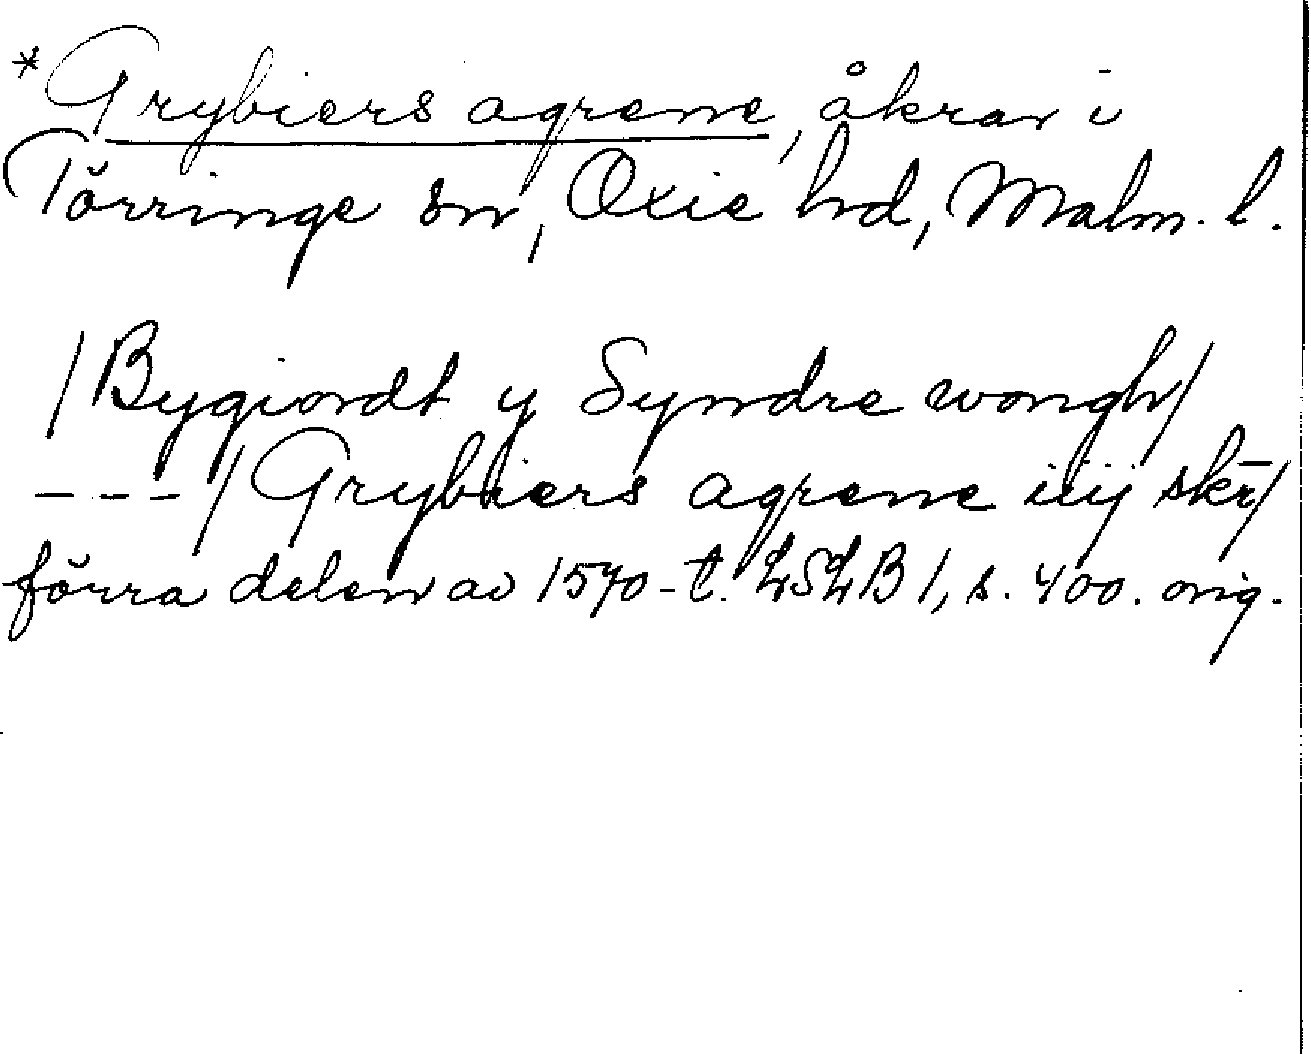 *Grybiers agrene, åkrar i
Törringe sn, Oxie hd, Malm. l.
/Bygiordt y Syndre wongh/
---/Grybiers agrene iiij skr̄/
förra delen av 1570-t. LSLB 1, s. 400. orig.